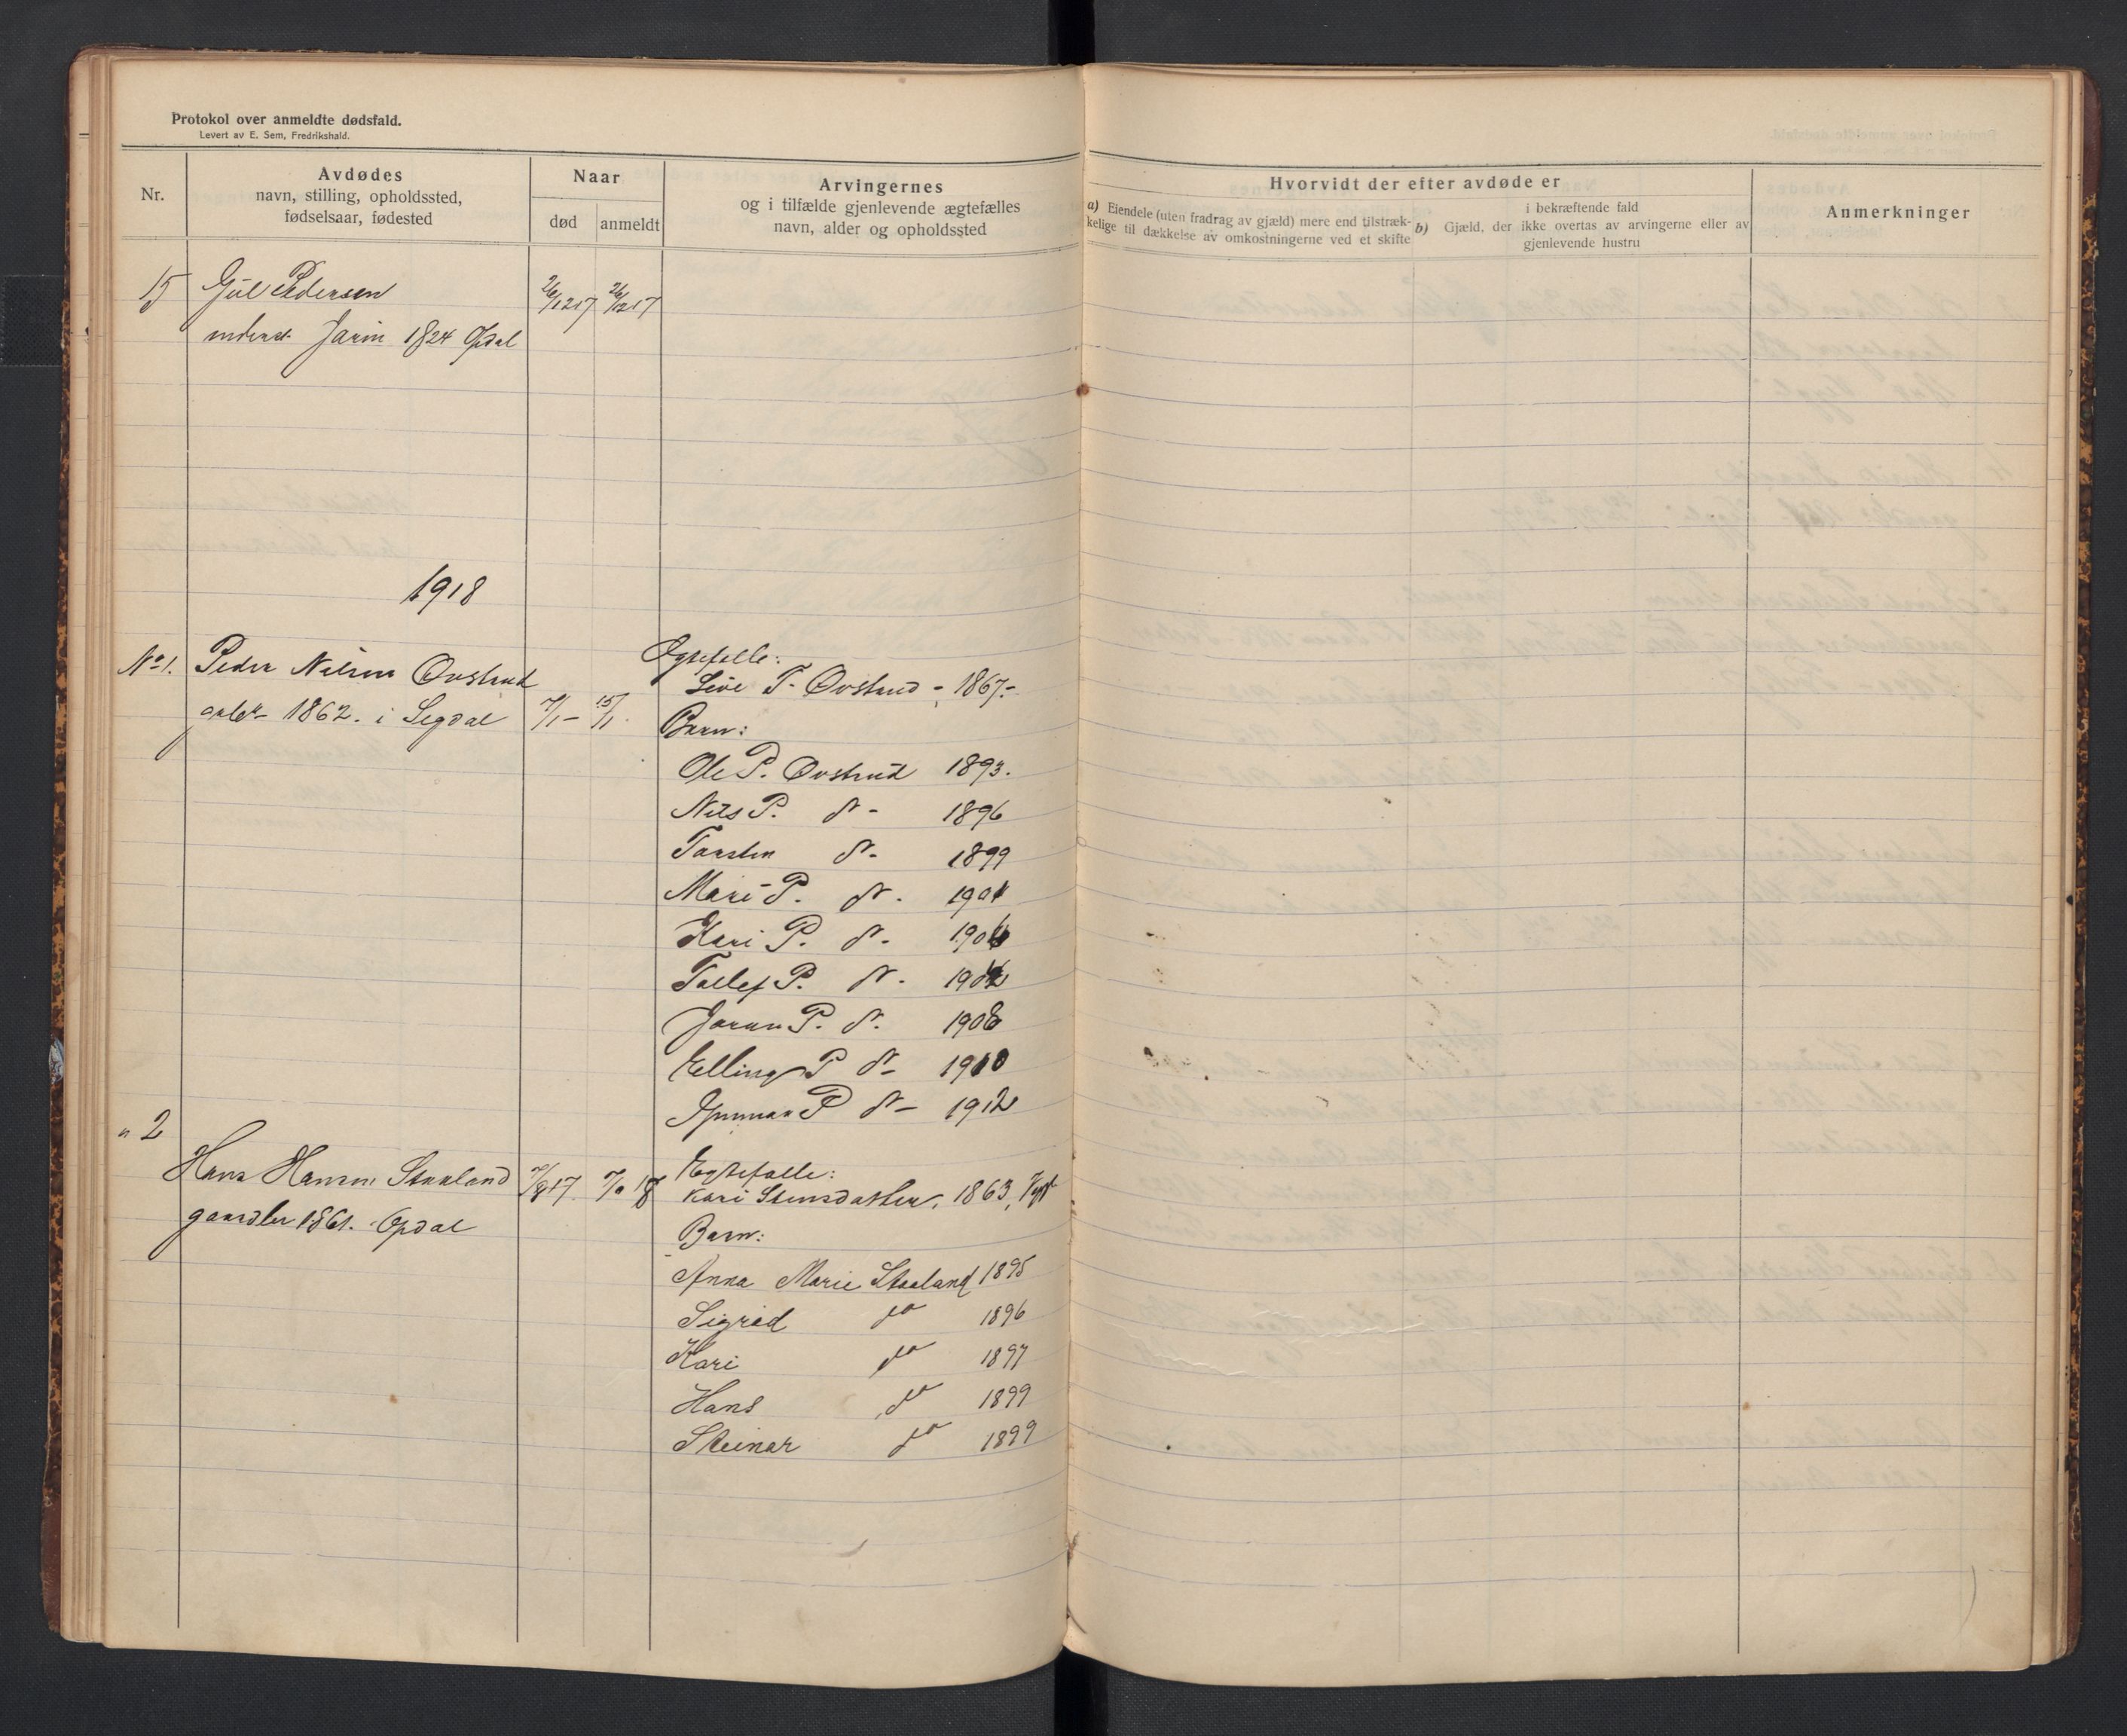 Protokol over anmeldte dødsfald.
Levert av E. Sem, Fredrikshald.
Nr.
Avdødes
navn, stilling, opholdssted,
fødselsaar, fødested
Naar
død
anmeldt
Arvingernes
og i tilfælde gjenlevende ægtefælles
navn, alder og opholdssted
Hvorvidt der efter avdøde er
a) Eiendele (uten fradrag av gjæld) mere end tilstræk-
kelige til dækkelse av omkostningerne ved et skifte
i bekræftende fald
b) Gjæld, der ikke overtas av arvingerne eller av
gjenlevende hustru
Anmerkninger
15 Gul Pedersen 26/12 17 26/12 17
inderst Jarin 1824 Opdal
1918
No 1. Peder Nilsen Øvstrud
Ægtefelle:
Live T. Øvstrud - 1867.-
1862. i Sigdal 7/1 - 15/1.
Barn:
Ole P. Øvstrud 1893.
Nils P. do - 1896
Torsten do - 1899
Mari P. do - 1901
Kari P. do - 190
Tollef P. do - 190
Joran P. do - 1908
Elling P do - 1910
Gunnar P do - 1912
" 2
Hans Hansen Staaland 17. 18
Egtefælle:
Kari Stensdatter, 1863,
1861. Opdal
Barn:
Anna Marie Staaland 1895
Sigrid do 1896
Kari do 1897
Hans do 1899
Steinar do 1899